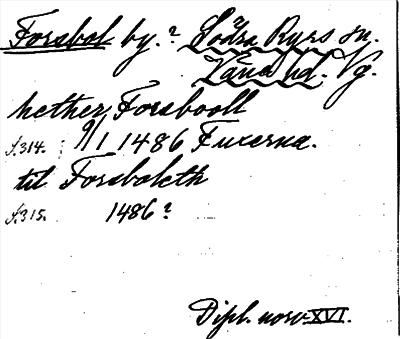 Forsbol by.? Södra Ryrs sn.
Väne hd. Vg.
hether Forsbooll
s.314. : 9/1 1486 Fuxerna.
til Forsboleth
s.315. 1486?
Dipl. norv. XVI.